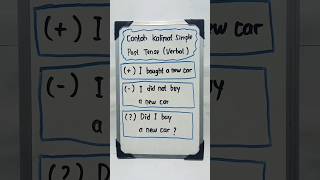 Contoh Kalimat Simple
Past Tense (Verbal)
(+) I bought a new car
(-) I did not buy
a new car
(?) Did I buy
a new car ?